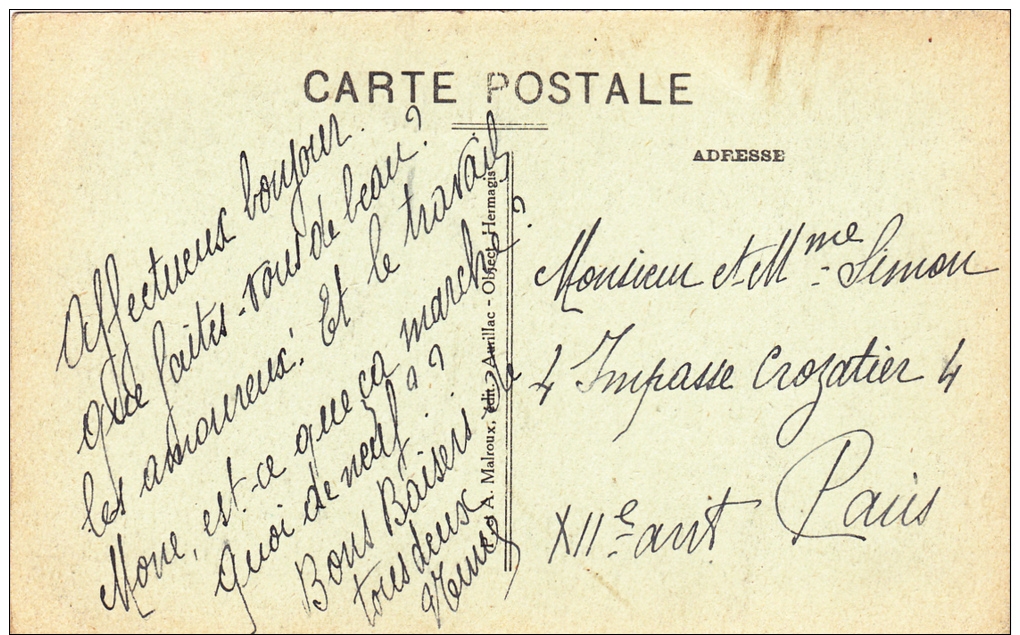 CARTE POSTALE
ADRESSE
Affectueux bonjour.
Que faites-vous de beau ?
les amoureux ! Et le travail
Mone, est-ce que ça marche ?
quoi de neuf ? ?
Bons Baisers de
tous deux
A. Malroux, édit., Aurillac - Object. Hermagis
Monsieur et Mme Simon
4 Impasse Crozatier 4
Paris
XIIe arrt